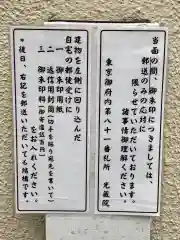 当面の間、御朱印につきましては、
郵送のみの応対に
限らせていただいております。
諸事情御理解ください。
東京御府内第八十一番札所　光蔵院
建物を左側に回り込んだ
自宅の郵便受けに
一　御朱印用紙
二　返信用封筒（切手を貼り宛名を書いて）
三　御朱印料
をお入れください。
＊後日、右記を郵送いただいても結構です。